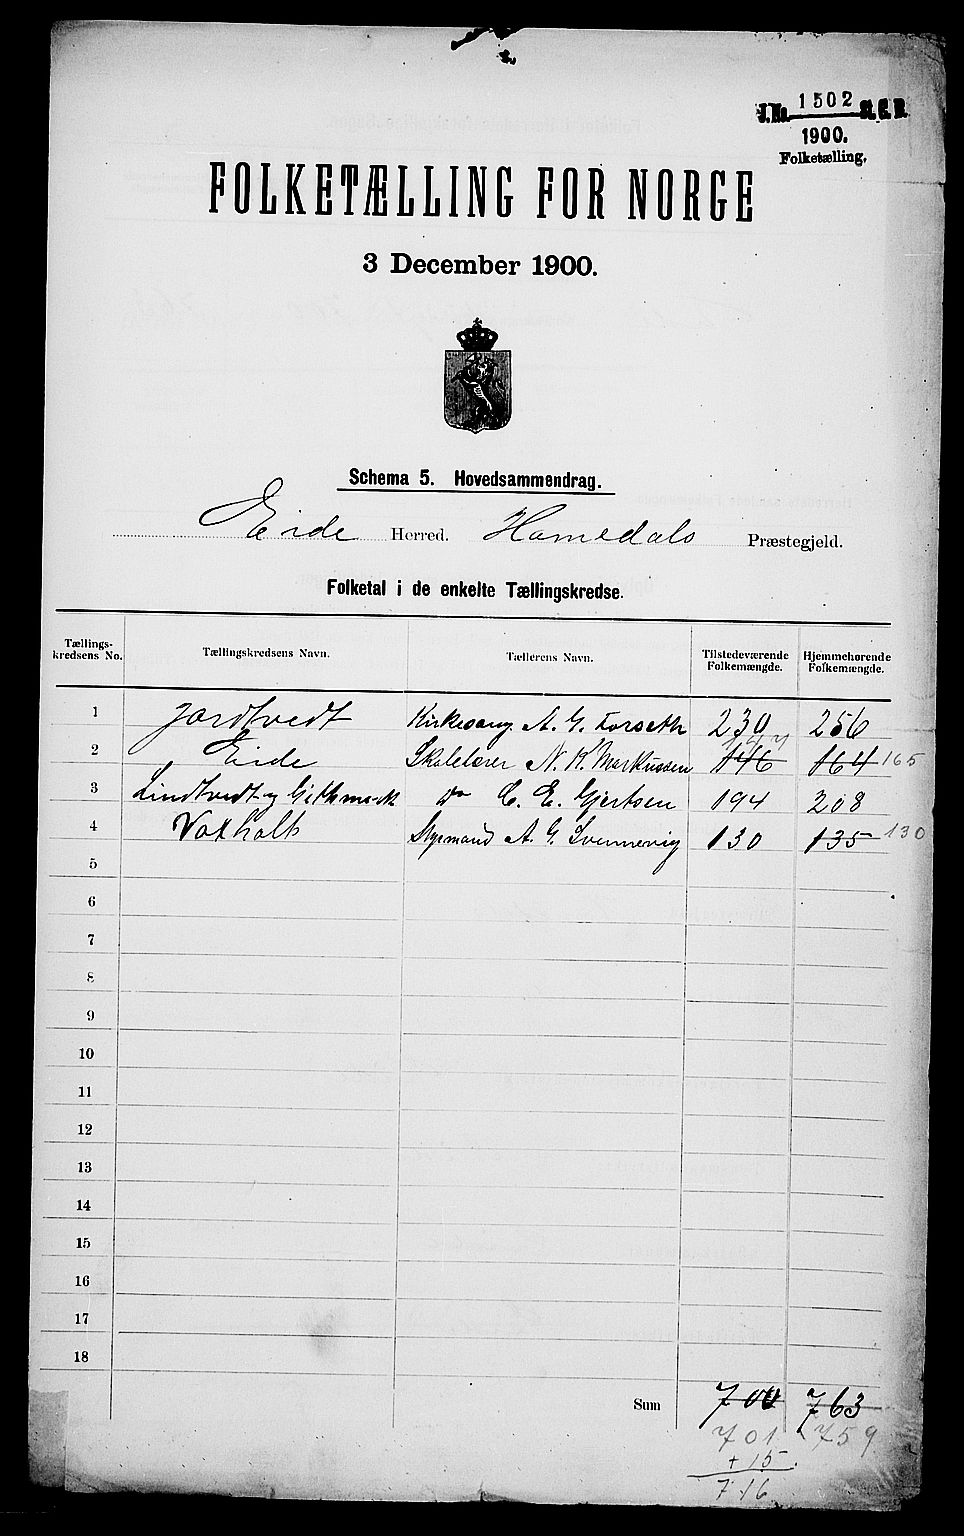 J.No. 1502 St. C. B.
1900.
Folketælling.
FOLKETÆLLING FOR NORGE
3 December 1900.
Schema 5. Hovedsammendrag.
Eide Herred. Homedals Præstegjeld.
Folketal i de enkelte Tællingskredse.
Tællings-kredsens No. Tællingskredsens Navn. Tællerens Navn. Tilstedeværende Folkemængde. Hjemmehørende Folkemængde.
1 Jordtvedt Kirkesang. A. G. Forseth 230 256
2 Eide Skolelærer N. K. Markussen 146 147 164 165
3 Lindtvedt og C. E. Gjertsen 194 208
4 Voxholt Styrmand A. G. Svennevig 130 135 130
5
6
7
8
9
10
11
12
13
14
15
16
17
18
Sum 700 763
701 759
+ 15
716